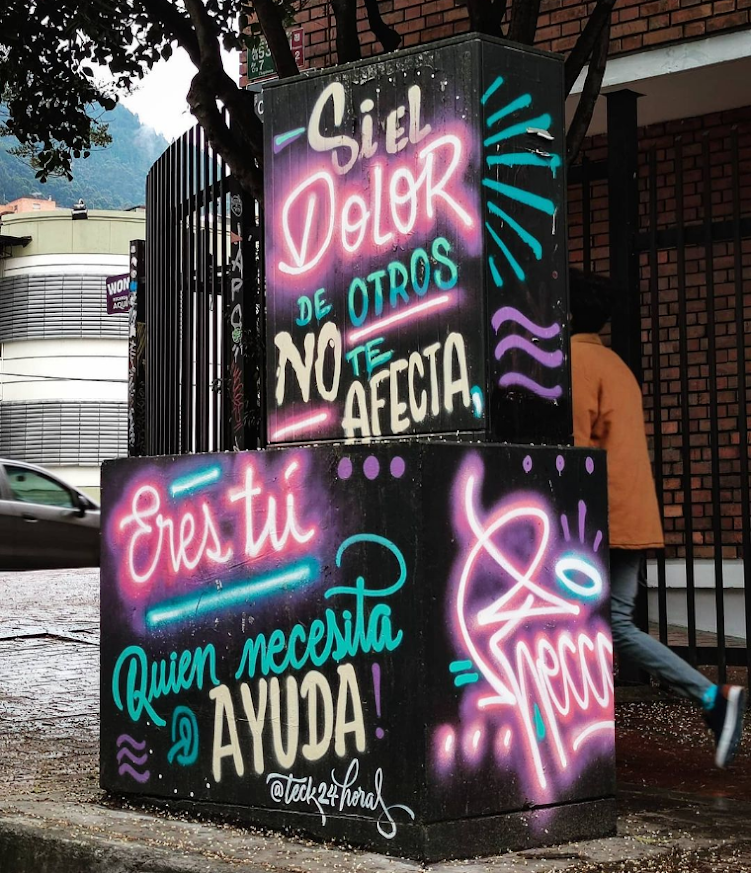 Si EL
DOLOR
DE OTROS
NO TE
AFECTA,
Eres tú
Quien necesita
AYUDA!
@teck24horas
WOM